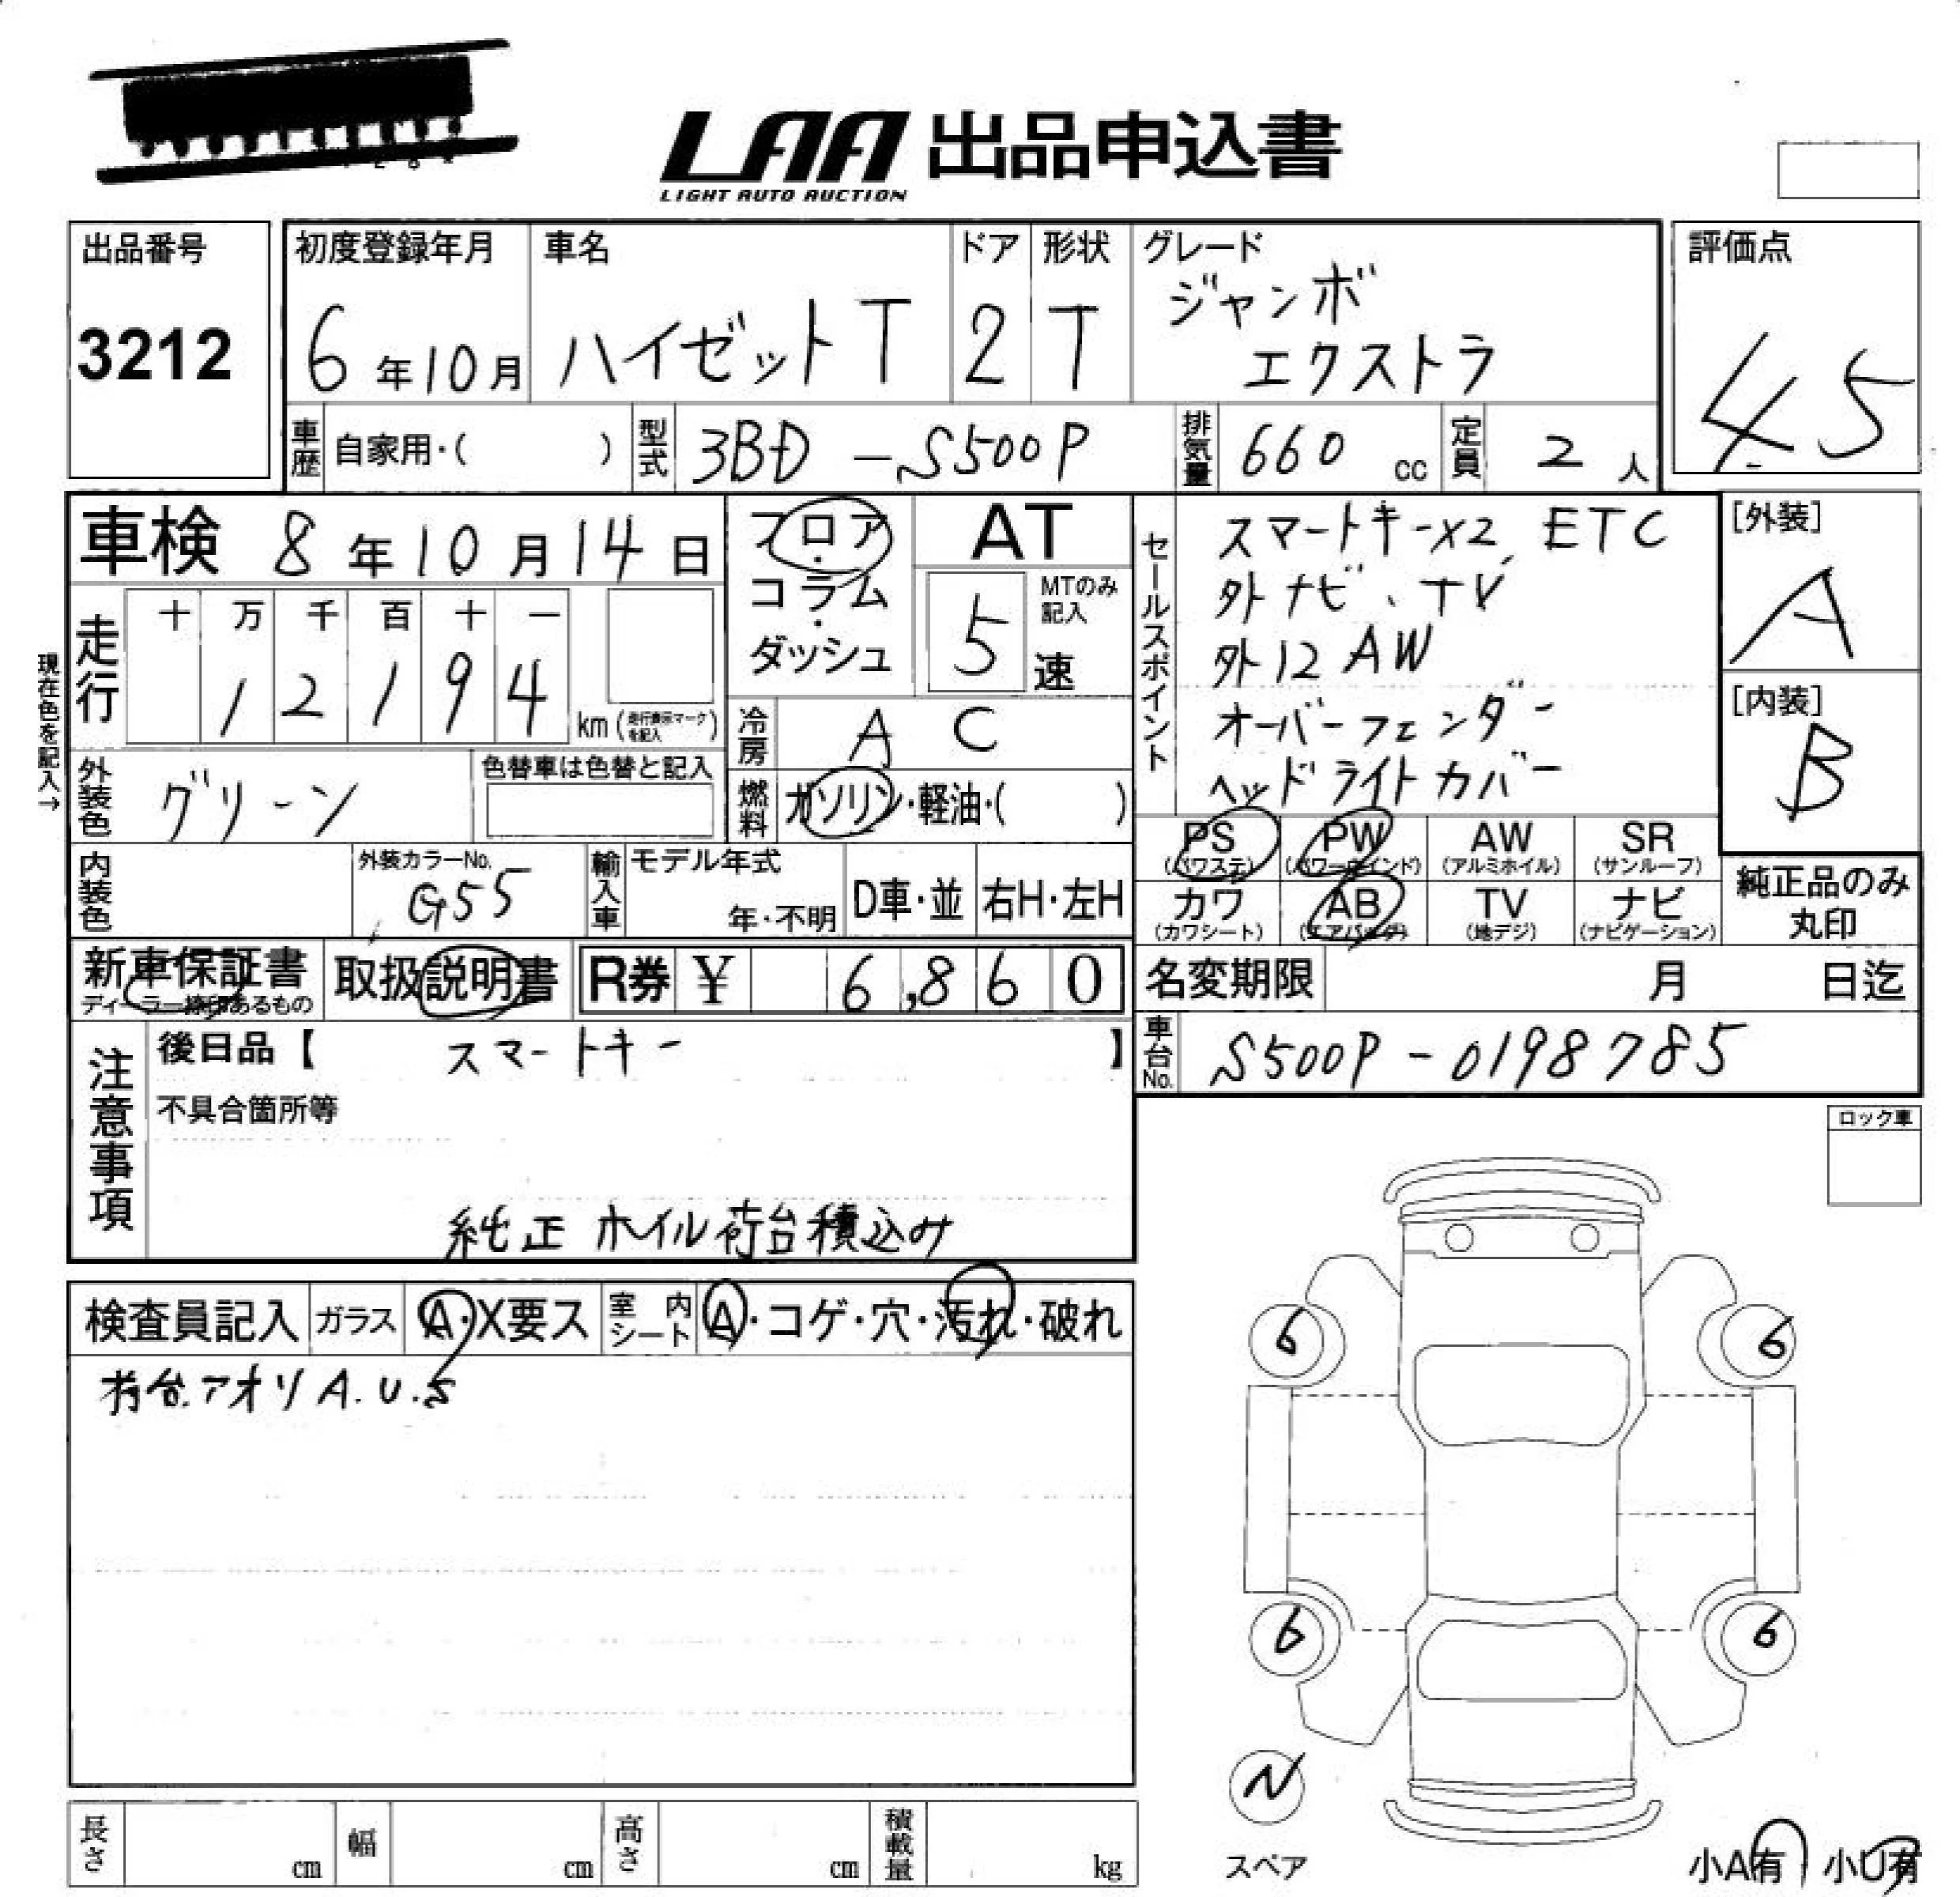 LAA 出品申込書
LIGHT AUTO AUCTION
出品番号
3212
初度登録年月
6年10月
車名
ハイゼットT
ドア
2
形状
T
グレード
ジャンボ
エクストラ
評価点
4.5
車歴 自家用・( )
型式 3BD-S500P
排気量 660 cc
定員 2人
車検 8年10月14日
現在色を記入→
走行
十 万 千 百 十 一
1 2 1 9 4
km(走行表示マークを記入)
フロア・
コラム・
ダッシュ
AT
MTのみ記入
5速
冷房 AC
燃料 ガソリン・軽油・( )
外装色 グリーン
色替車は色替と記入
内装色
外装カラーNo.
G55
輸入車
モデル年式
年・不明
D車・並
右H・左H
セールスポイント
スマートキーX2, ETC
外ナビ、TV
外12AW
オーバーフェンダー
ヘッドライトカバー
[外装]
A
[内装]
B
PS (パワステ)
PW (パワーウインド)
AW (アルミホイル)
SR (サンルーフ)
カワ (カワシート)
AB (エアバッグ)
TV (地デジ)
ナビ (ナビゲーション)
純正品のみ
丸印
新車保証書
ディーラー捺印あるもの
取扱説明書
R券 ¥ 6,860
名変期限 月 日迄
車台No. S500P-0198785
注意事項
後日品【 スマートキー 】
不具合箇所等
純正ホイル荷台積込み
ロック車
検査員記入
ガラス A・X要ス
室内シート A・コゲ・穴・汚れ・破れ
荷台.アオリA.U.S
6
6
6
6
N
スペア
小A有 小U有
長さ cm
幅 cm
高さ cm
積載量 kg